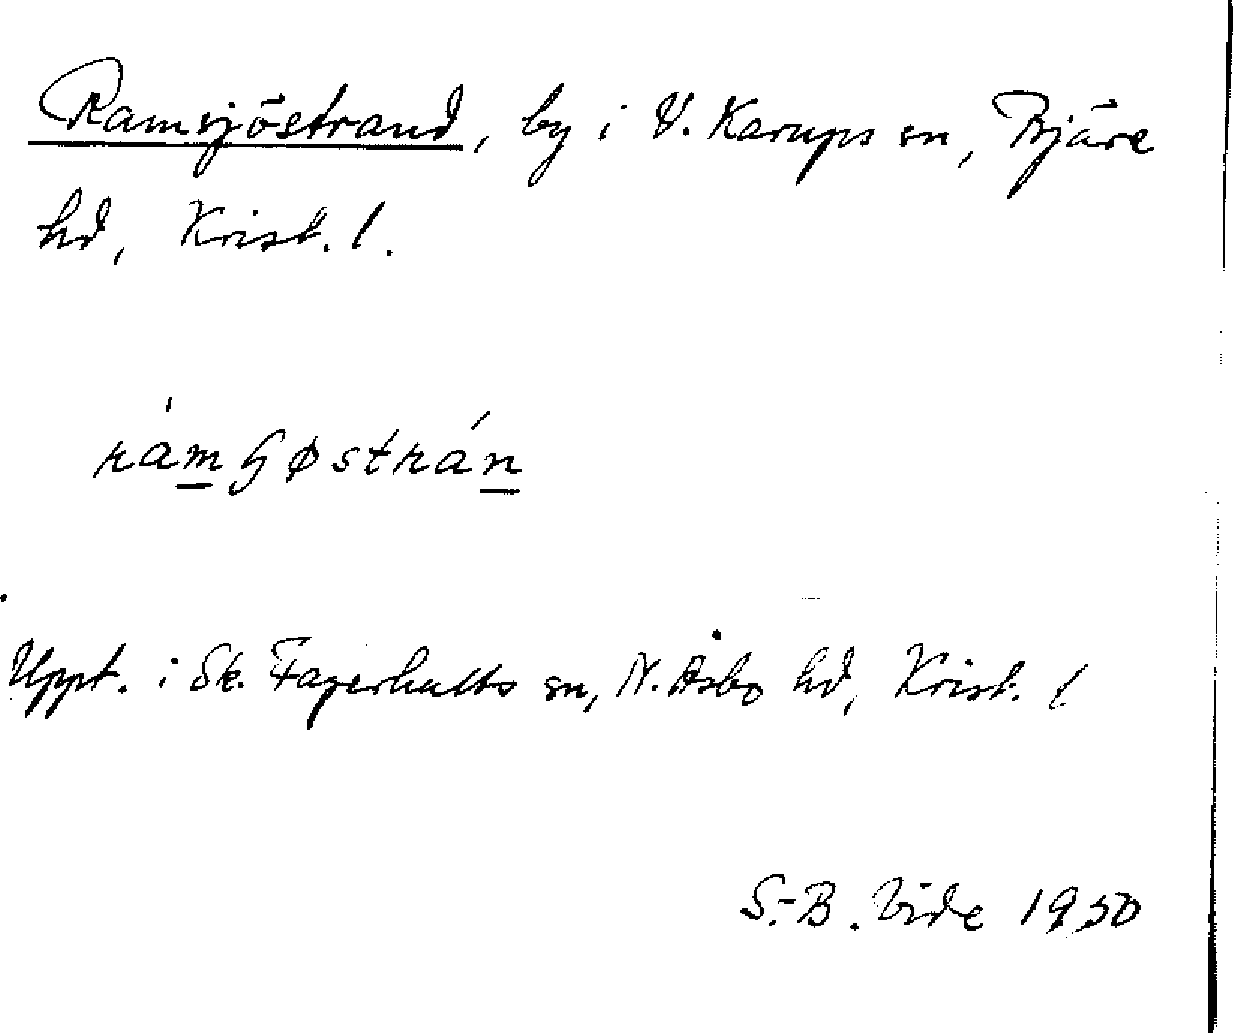 Ramsjöstrand, by i V. Karups sn, Bjäre
hd, Krist. l.
rámGøstrán
Uppt. i Sk. Fagerhults sn, N. Åsbo hd, Krist. l
S.-B. Vide 1950